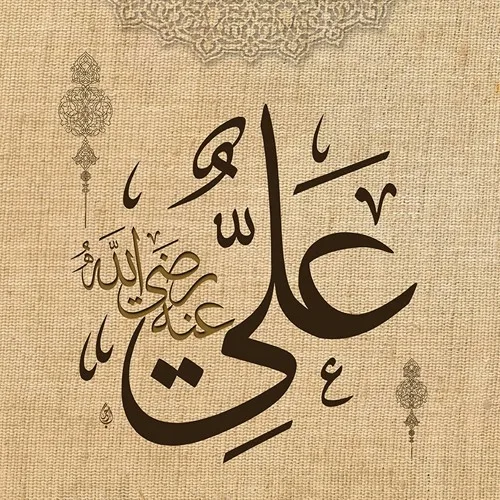 عَلِيٌّ
رَضِيَ اللّٰهُ
عَنْهُ